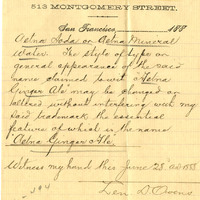 513 MONTGOMERY STREET.
San Francisco, 188
Aetna Soda or Aetna Mineral
Water. The style of type or
general appearance of the said
name claimed to wit "Aetna
Ginger Ale" may be changed or
altered without interfering with my
said trademark the essential
feature of which is the name
Aetna Ginger Ale.
Witness my hand this June 28th A.D. 1883
Len D. Owens